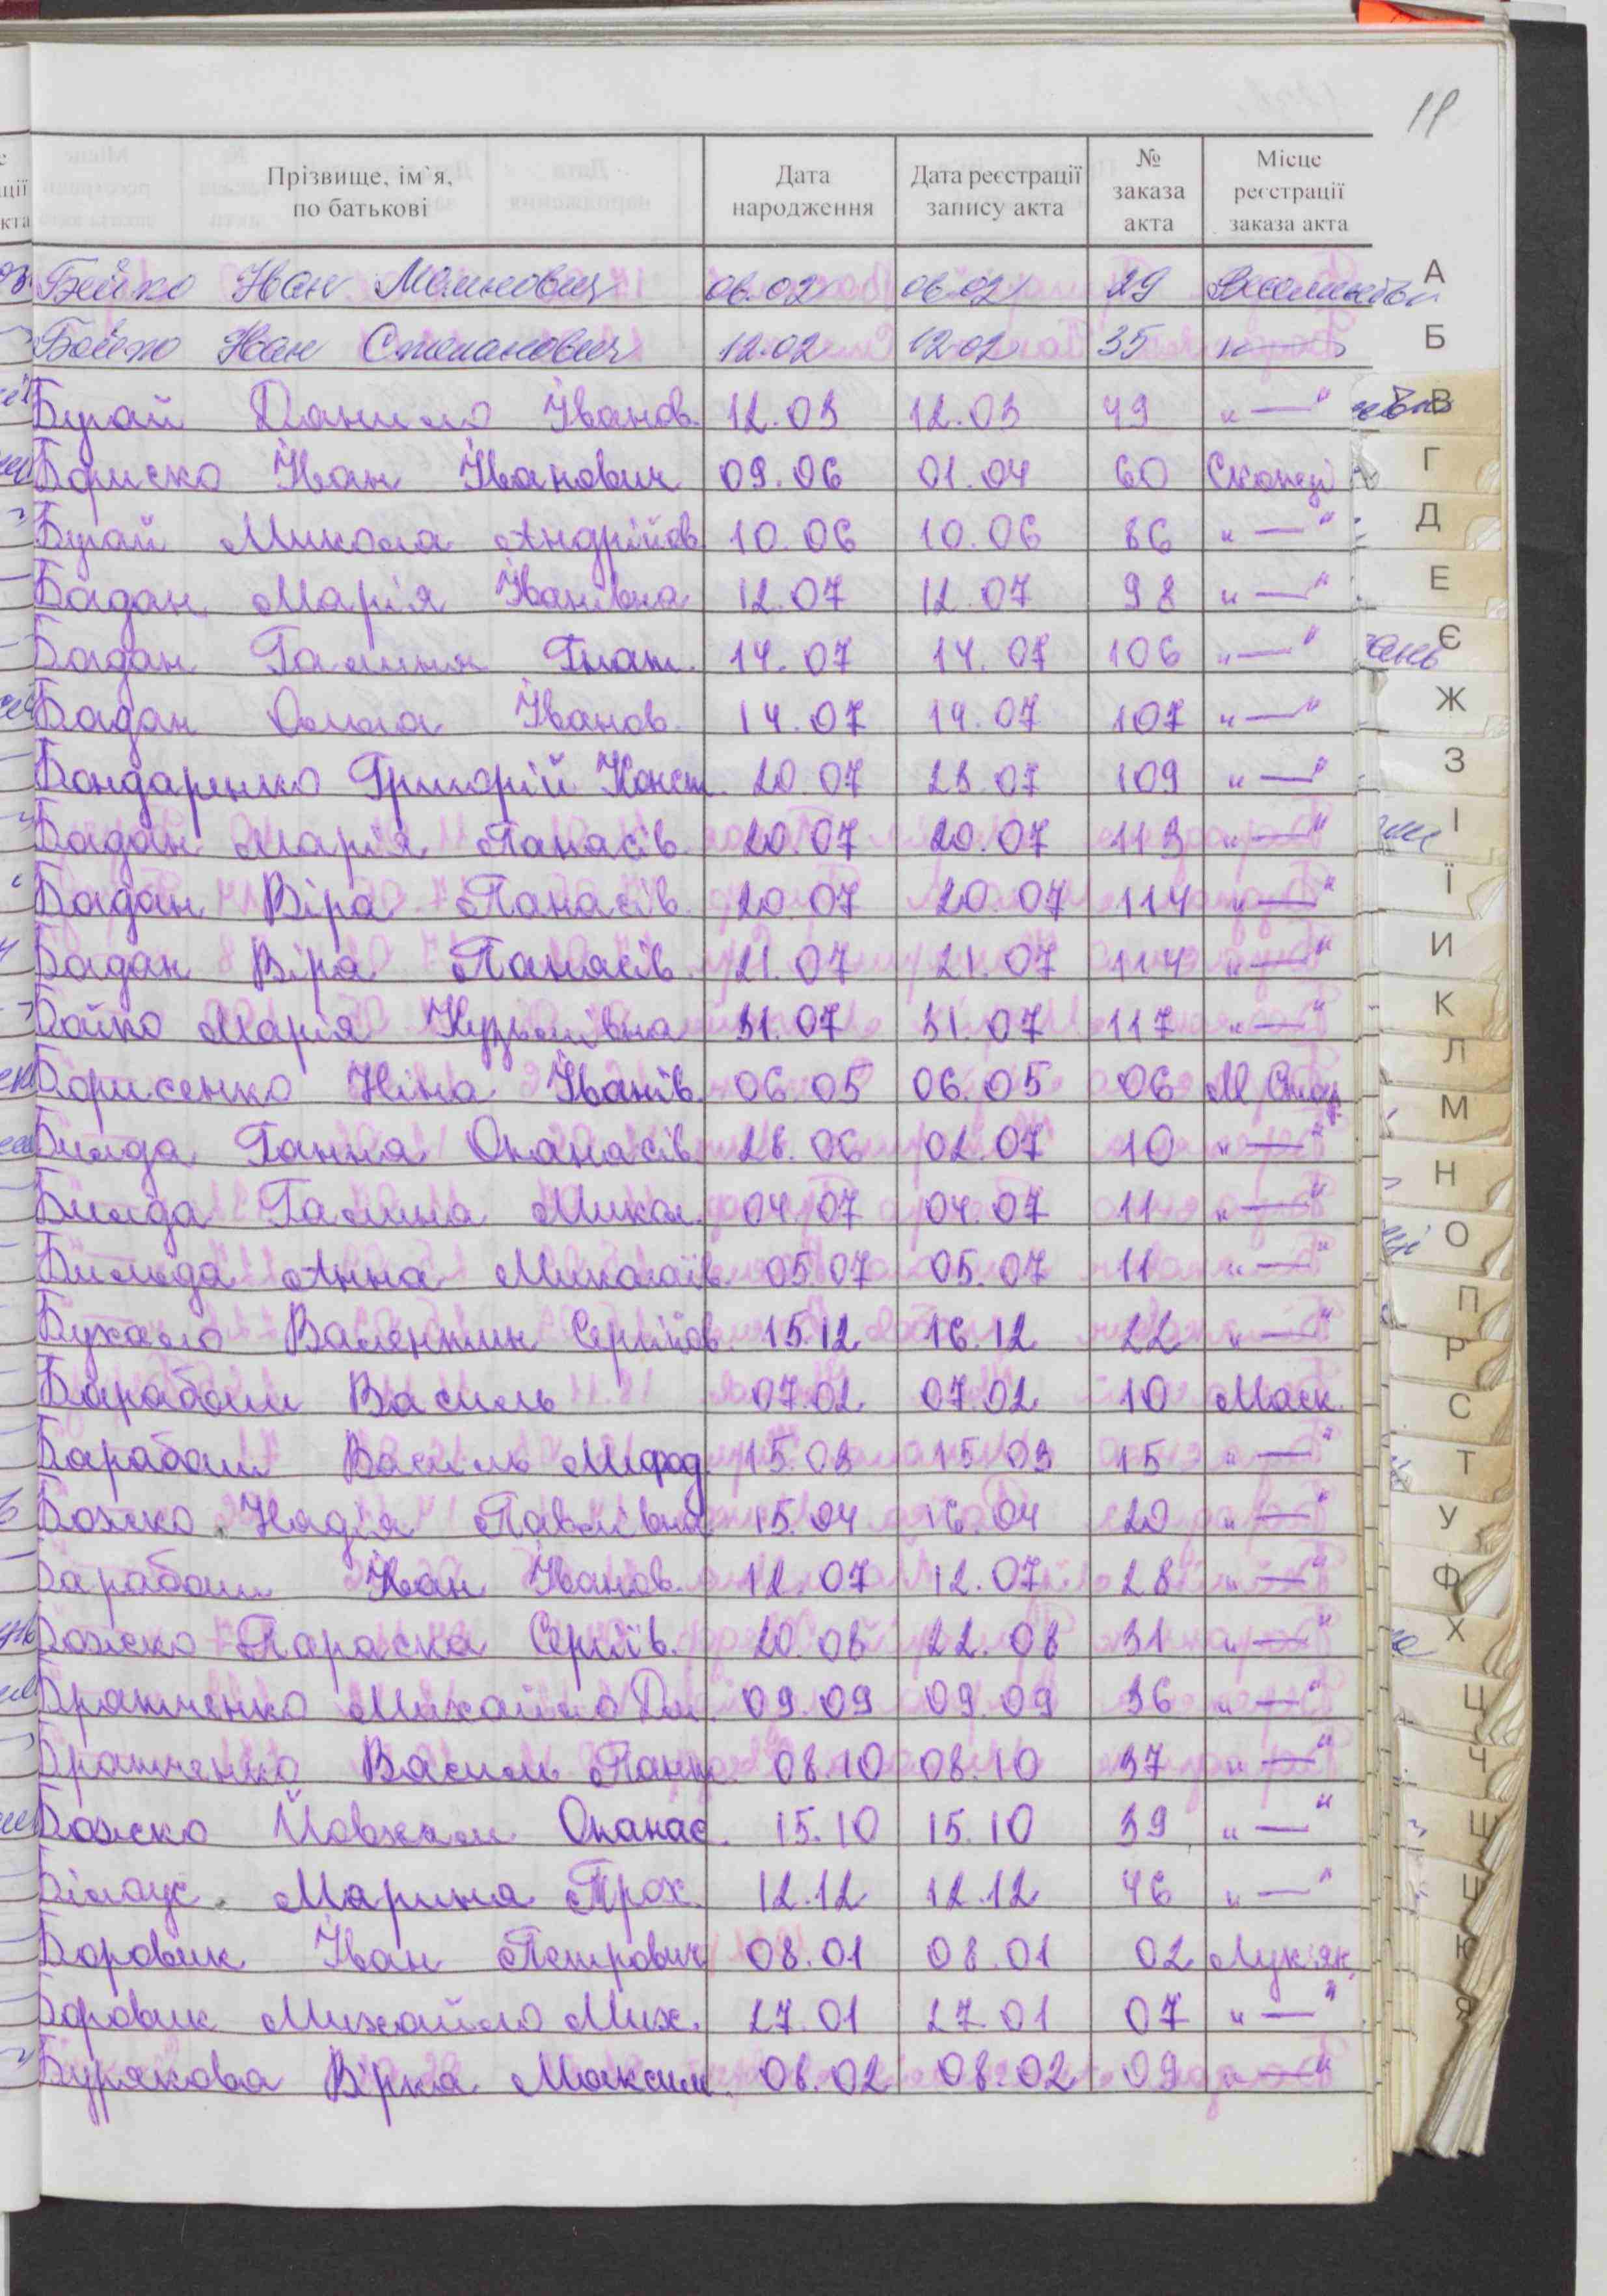 11
Прізвище, ім`я, по батькові Дата народження Дата реєстрації запису акта № заказа акта Місце реєстрації заказа акта
Бойко Іван 06.02 06.02 29
Бойко Іван Степанович 12.02 12.02 35 "—"
Бугай Данило Іванов. 12.03 12.03 49 "—"
Бориско Іван Іванович 09.06 01.04 60
Бугай Микола Андрійов 10.06 10.06 86 "—"
Багдан Марія Іванівна 12.07 12.07 98 "—"
Багдан Галина Гнат. 14.07 14.07 106 "—"
Багдан Ольга Іванов. 14.07 14.07 107 "—"
Бондаренко Григорій Конст. 20.07 23.07 109 "—"
Багдан Марія Панасів. 20.07 20.07 113 "—"
Багдан Віра Панасів. 20.07 20.07 114 "—"
Багдан Віра Панасів. 21.07 21.07 114 "—"
Бойко Марія Кузьмівна 31.07 31.07 117 "—"
Борисенко Ніна Іванів. 06.05 06.05 06
Бильда Ганна Опанасів. 28.06 02.07 10 "—"
Бильда Галина Микол. 04.07 04.07 11 "—"
Бильда Анна Миколаїв. 05.07 05.07 11 "—"
Бухало Валентин Сергійов. 15.12 16.12 22 "—"
Барабаш Василь 07.02 07.02 10 Моск.
Барабаш Василь Мефод. 15.03 15.03 15 "—"
Божко Надія Павлівна 15.04 16.04 20 "—"
Барабаш Іван Іванов. 12.07 12.07 28 "—"
Божко Параска Сергіїв. 20.08 22.08 31 "—"
Братченко Михайло Дм. 09.09 09.09 36 "—"
Братченко Василь Пант. 08.10 08.10 37 "—"
Божко Йовхам Опанас. 15.10 15.10 39 "—"
Білоус Марина Прох. 12.12 12.12 46 "—"
Боровик Іван Петрович 08.01 08.01 02 Лук'ян.
Боровик Михайло Мих. 27.01 27.01 07 "—"
Бурякова Вірка Максим. 08.02 08.02 09 "—"
А
Б
В
Г
Д
Е
Є
Ж
З
І
Ї
И
К
Л
М
Н
О
П
Р
С
Т
У
Ф
Х
Ц
Ч
Ш
Щ
Ю
Я